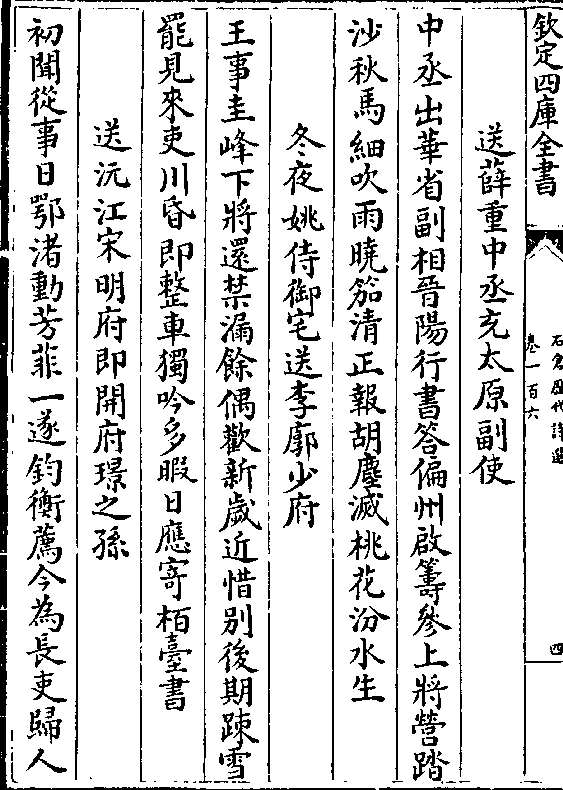 欽定四庫全書
石倉歷代詩選
卷一百六
四
送薛重中丞充太原副使
中丞出華省副相晉陽行書答偏州啟籌參上將營踏
沙秋馬細吹雨曉笳清正報胡塵滅桃花汾水生
冬夜姚侍御宅送李廓少府
王事圭峰下將還禁漏餘偶歡新歲近惜別後期踈雪
罷見來吏川昏即整車獨吟多暇日應寄栢臺書
送沅江宋明府即開府璟之孫
初聞從事日鄂渚動芳菲一遂鈞衡薦今為長吏歸人